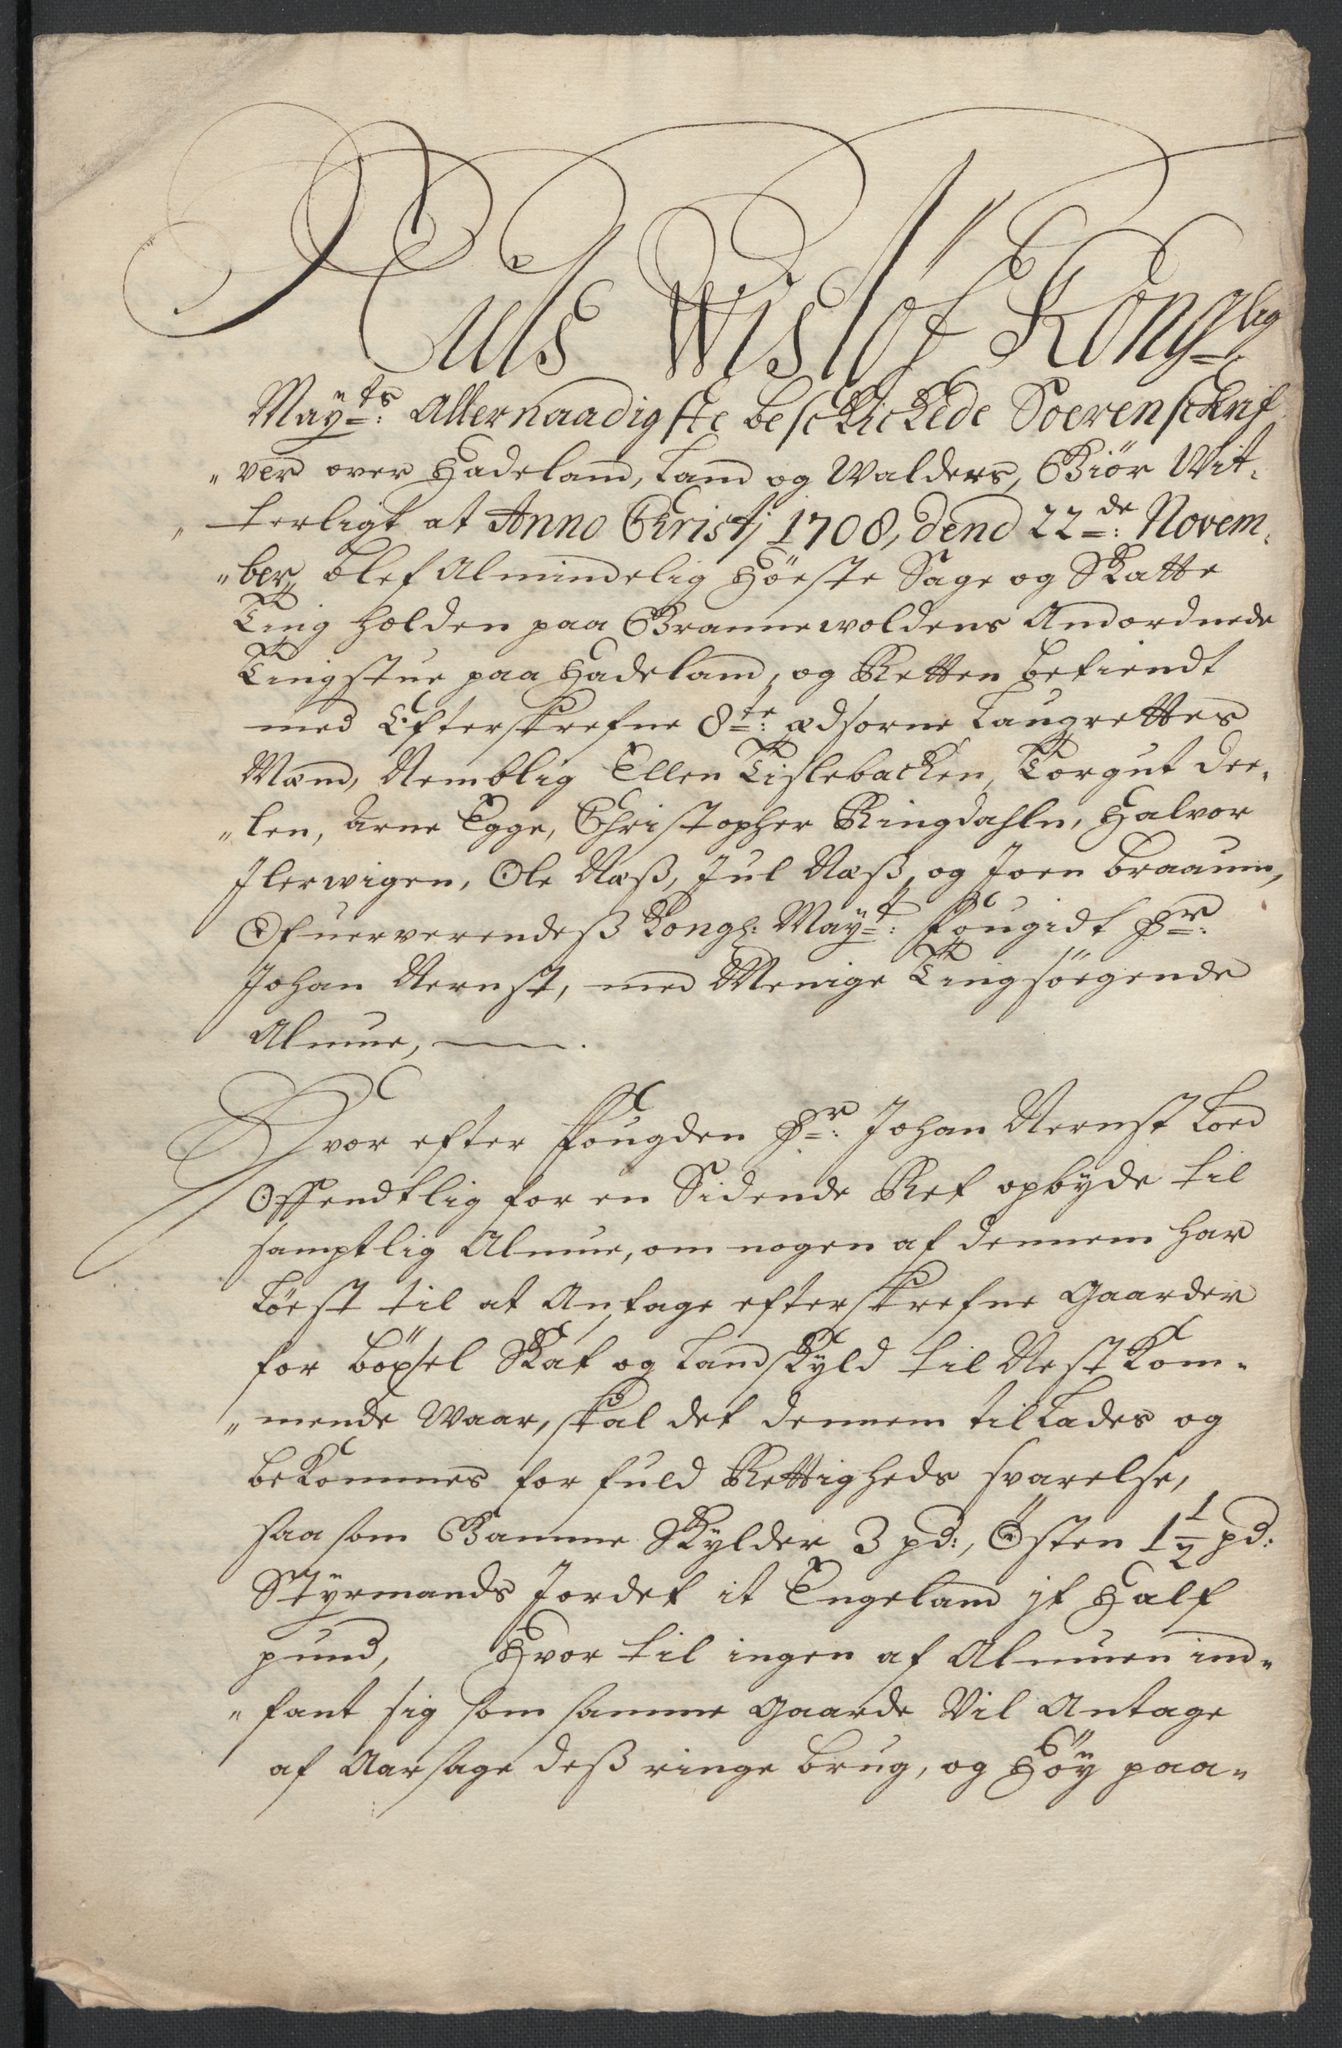 Nuls Wislöf Konglig
Mayts: Allernaadigste beschickede Soerenschrif
"ver over Hadeland, Land og Walders, Giör Wit-
"terligt at Anno Christj 1708, dend 22de: Novem-
"ber, blef Almindelig Höeste Sage og Skatte
Ting holden paa Grannewoldens Anordnede
Tingstue paa Hadeland, og Retten bekiendt
med Efterskrefne 8te: ædsorne Laugrettes
Mænd, Nemblig Ellen Tislebacken, Torgut Dee-
"len, Arne Egge, Christopher Ringdahln, Halvor
Ilerwigen, Ole Næß, Jul Næß, og Joen Braaum,
Ofuerverendeß Kongl: Mayt: Fougidt Hr:
Johan Nernst, med Menige Tingsöegende
Almue, ——.
Hvor efter Fougden Hr: Johan Nernst Loed
Offendtlig for en Sidende Ret opbyde til
samptlig Almue, om nogen af dennem har
Löest til at Antage efterskrefne Gaarder
for böxsel Skat og Landskyld til Nestkom-
"mende Waar, skal det dennem tillades og
bekommes for fuld Rettigheds svarelse,
saa som Gamme Skylder 3 pd:, Östen 1 1/2 pd:
Styrmands Jordet it Engeland jt Half
pund, Hvor til ingen af Almuen ind-
"fant sig som samme Gaarde Vil Antage
af Aarsage deß ringe brug, og Höy paa-